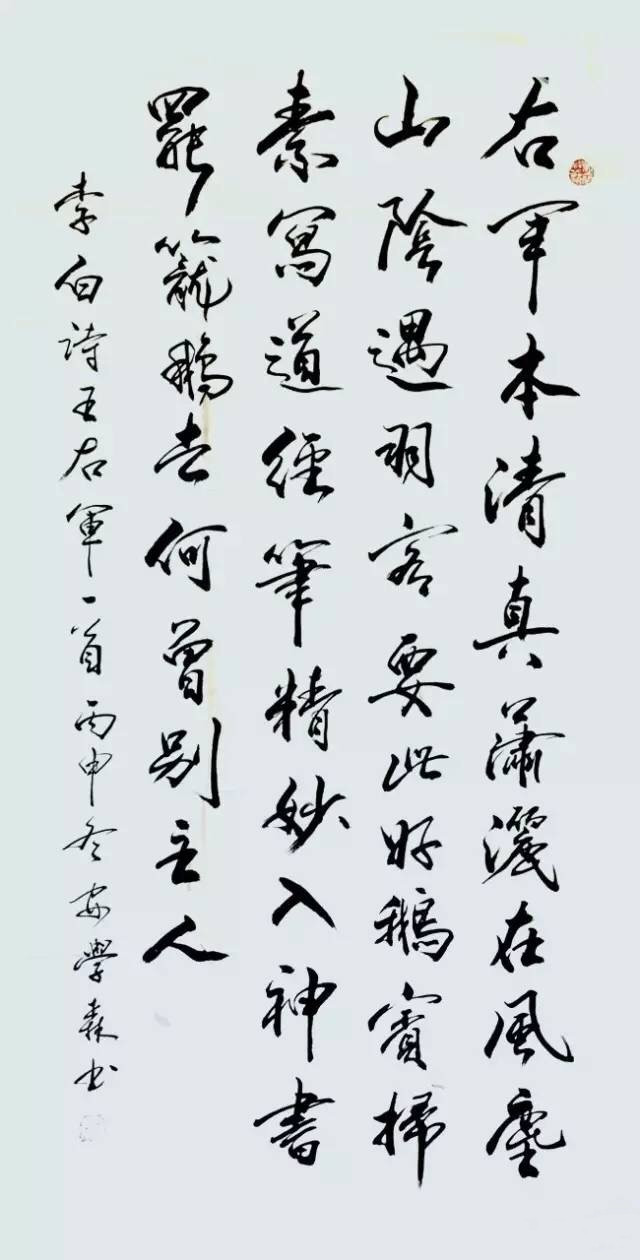 右军本清真潇灑在風塵
山陰遇羽客要此好鵝賓掃
素寫道經筆精妙入神書
罷籠鵝去何曾别主人
李白詩王右軍一首丙申冬安學森书